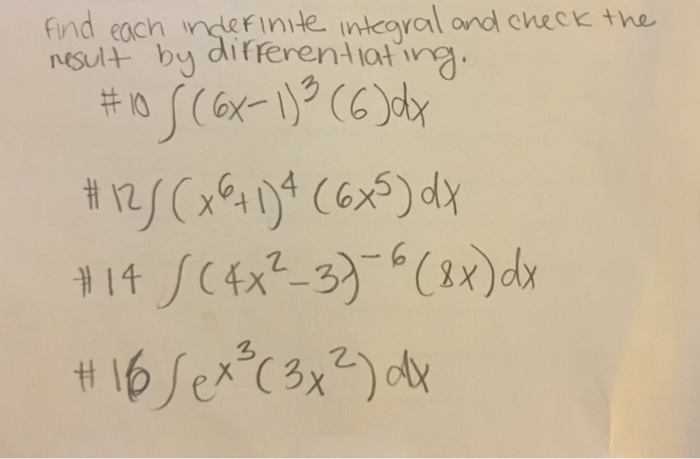 Find each indefinite integral and check the
result by differentiating.
#10 ∫(6x-1)³ (6)dx
#12 ∫(x⁶+1)⁴ (6x⁵) dx
#14 ∫(4x²-3)⁻⁶ (8x)dx
#16 ∫eˣ³(3x²) dx